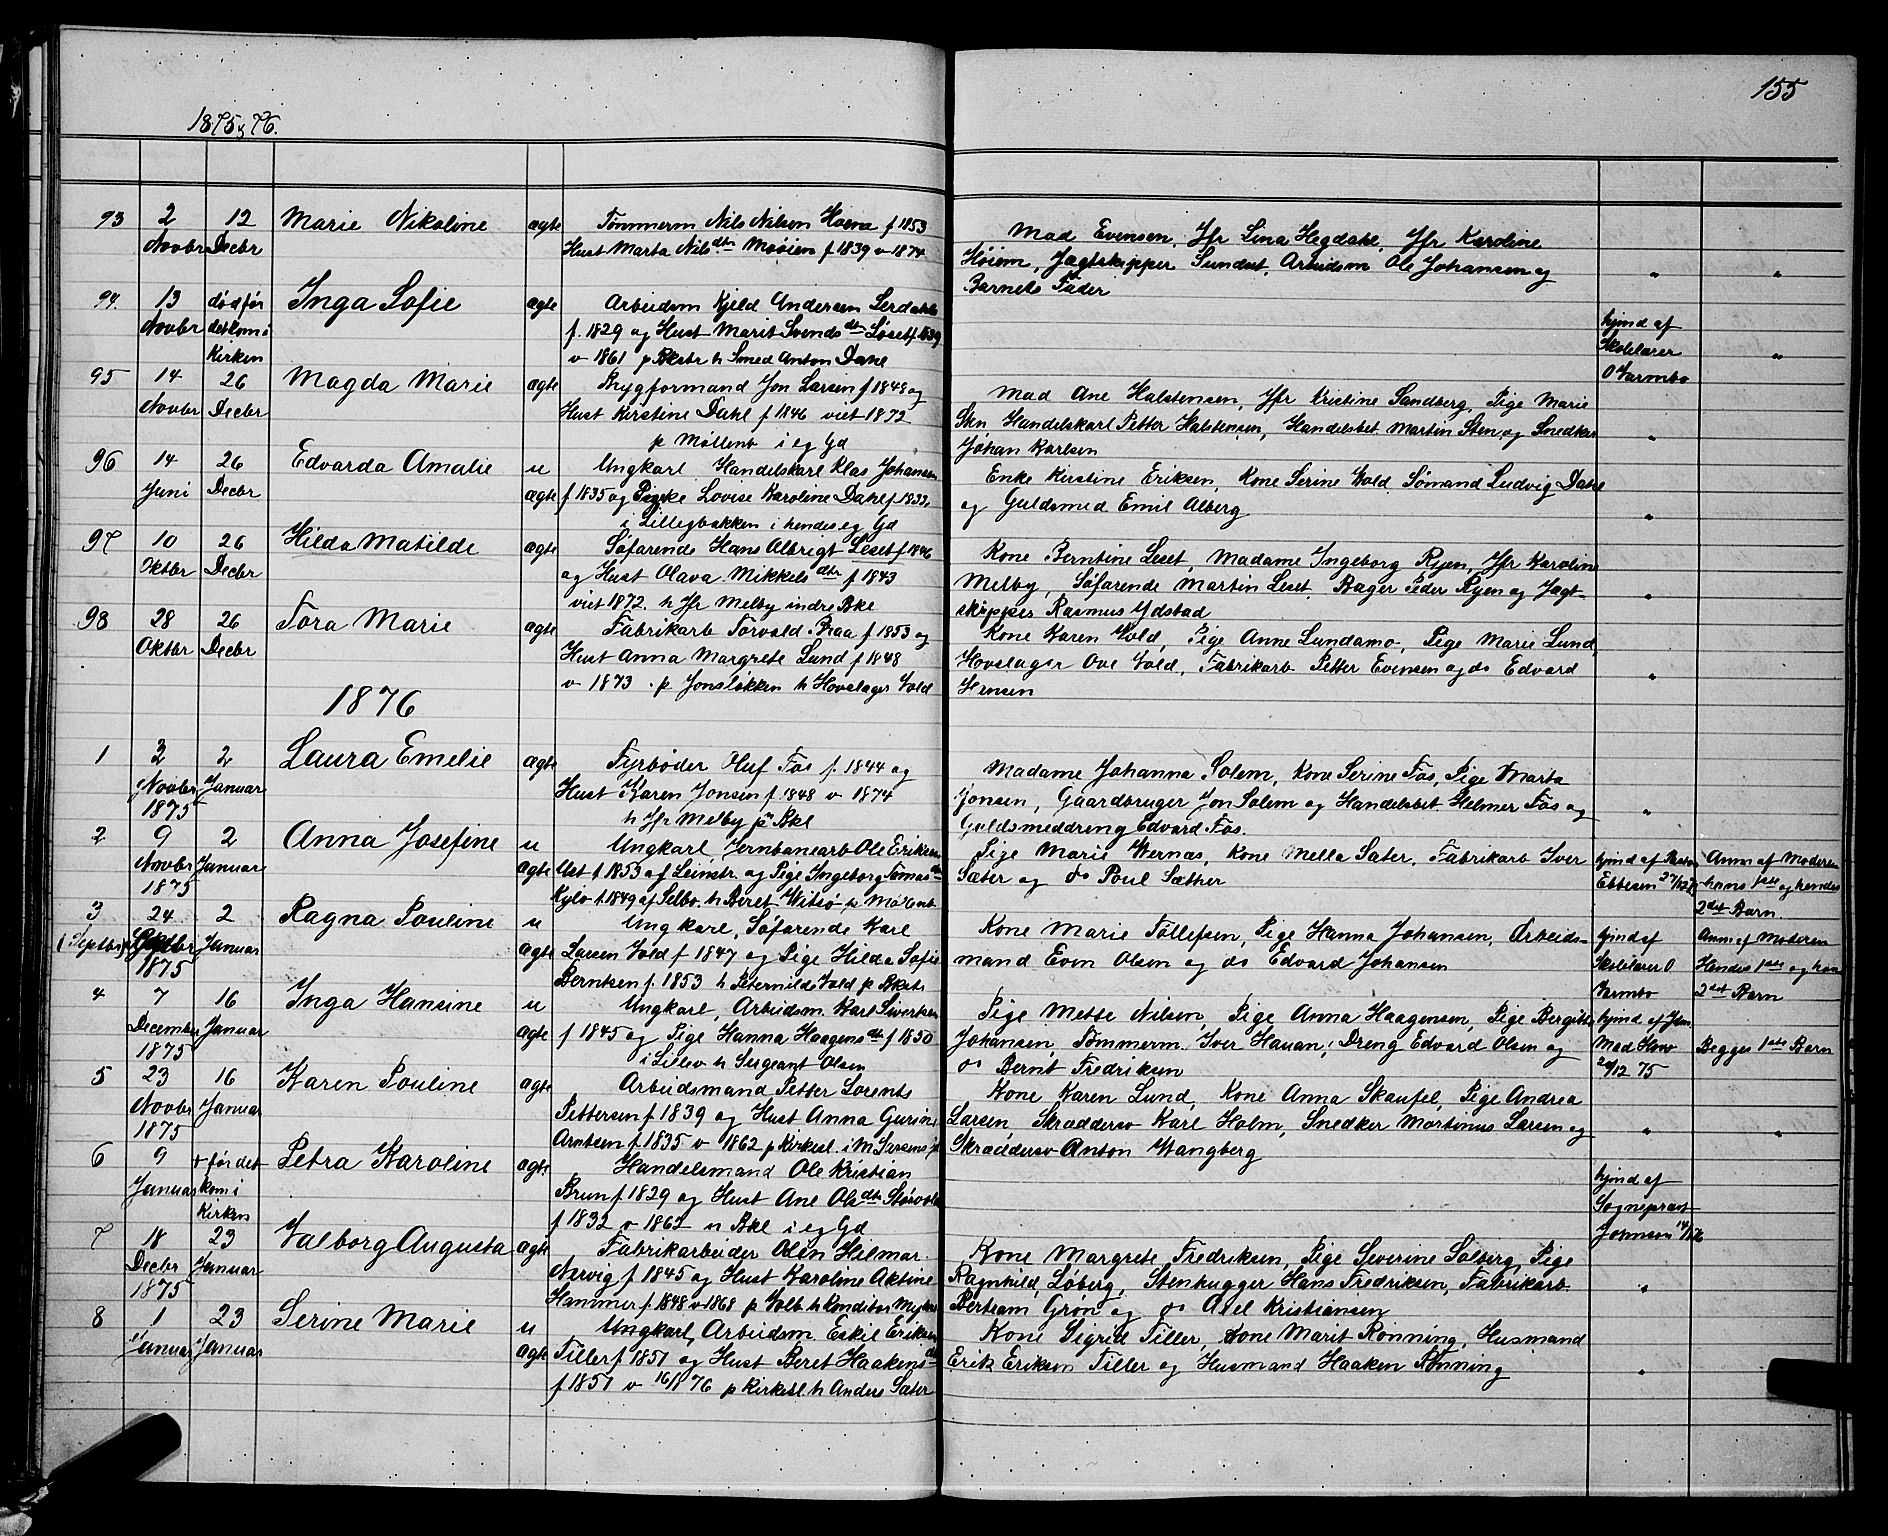 155
1875 og 76.
93 2 Novbr 12 Decbr Marie Nikoline ægte Tømmerm Nils Nilsen f 1853
Hust Marta Nilsdtr Møøien f 1839 v 1874
Mad Evensen, Jfr Lina Hegdahl, Jfr Karoline
Høiem, Jagtskipper Sundset, Arbeidsm Ole Johansen og
Barnets Fader " "
94. 13 Novbr død før det kom i Kirken Inga Sofie ægte Arbeidsm Kjeld Andersen
f. 1829 og Hust Marit Svendsdtr Løset f 1839
v 1861 p Bkstr h Smed Anton Dahl
hjmd af
Skolelærer
O Varmbo "
95 14 Novbr 26 Decbr Magda Marie ægte Brygformand Jon Larsen f 1848 og
Hust Kirstine Dahl f 1846 viet 1872
p Møllenb i eg Gd
Mad Ane Halstensen, Jfr Kristine Sandberg, Pige Marie
Stn Handelskarl Petter Halstensen, Handelsbet. Martin Sten og Snedker
Johan Karlsen "
96 14 Juni 26 Decbr Edvarda Amalie u ægte Ungkarl Handelskarl Klas Johansen
f 1835 og Pige Lovise Karoline Dahl f 1833,
i Lillegbakken i hendes eg Gd
Enke Kirstine Eriksen, Kone Serine Vold, Sømand Ludvig Dahl
og Guldsmed Emil Alberg "
97 10 Oktbr 26 Decbr Hilda Matilde ægte Søfarende Hans Albrigt Leset f 1846
og Hust Olava Mikkelsdtr f 1843
viet 1872. h Jfr Melby indre Bkl
Kone Berntine Leset, Madame Ingeborg Ryen, Jfr Karoline
Melby, Søfarende Martin Leset, Bager Peder Ryen og Jagt-
skipper Rasmus Ydstad "
98 28 Oktbr 26 Decbr Tora Marie ægte Fabrikarb Torvald Braa f 1853 og
Hust Anna Margrete Lund f 1848
v 1873 . p Jonsløkken h Hovslager Vold
Kone Karen Vold, Pige Anne Lundamo, Pige Marie Lund
Hovslager Ove Vold, Fabrikarb Petter Evensen og do Edvard
Jensen "
1876
1 3 Novbr 1875 2 Januar Laura Emelie ægte Fyrbøder Oluf Fos f. 1844 og
Hust Karen Jonsen f. 1848 v 1874
h Jfr Melby p Bkl
Madame Johanna Solem, Kone Serine Fos, Pige Marta
Jonsen, Gaardbruger Jon Solem og Handelsbet. Helmer Fos og
Guldsmeddreng Edvard Fos. "
2 9 Novbr 1875 2 Januar Anna Josefine u ægte Ungkarl Jernbanearb Ole Eriksen
Ust f 1853 af Leinstr. og Pige Ingeborg Tomasdtr
Kylo f. 1849 af Selbo. h Beret Vitsø p Møllenb
Pige Marie Wernæs, Kone Mella Sæter, Fabrikarb Iver
Sæter og do Poul Sæther
hjmd af Pastor
Ebbesen 27/12 75
Anm af Moderen
hans 1ste og hendes
2det Barn.
3 (Septbr) 24 1875 2 Januar Ragna Pouline u ægte Ungkarl, Søfarende Karl
Larsen Vold f 1847 og Pige Hilda Sofie
Berntsen f. 1853 h Peternille Vold p Bkst.
Kone Marie Tollefsen, Pige Hanna Johansen, Arbeids-
mand Even Olsen og do Edvard Johansen
hjmd af
Skolelærer O
Varmbo
Anm af Moderen
Hendes 1ste og hans
2det Barn
4 7 December 1875 16 Januar Inga Hansine u ægte Ungkarl, Arbeidsm. Kars Sivertsen
f 1845 og Pige Hanna Haagensdtr f 1850
i Lillev h Sergeant Olsen
Pige Mette Nilsen, Pige Anna Haagensen, Pige Bergitte
Johansen, Tømmerm Iver Hauan, Dreng Edvard Olsen og
do Bernt Fredriksen
hjmd af Jdm
Mad Hov
20/12 75
Begges 1ste Barn
5 23 Novbr 1875 16 Januar Karen Pouline ægte Arbeidsmand Petter Lorents
Pettersen f 1839 og Hust Anna Gurine
Arntsen f. 1835 v 1862 p Kirkesl. i
Kone Karen Lund, Kone Anna Skaufel, Pige Andrea
Larsen, Skræddersv Karl Holm, Snedker Martinus Larsen og
Skræddersv Anton Wangberg " "
6 9 Januar + før det kom i Kirken Petra Karoline ægte Handelsmand Ole Kristian
Brun f 1829 og Hust Ane Olsdtr
f 1832 v 1862 n Bkl i eg Gd
hjmd af
Sogneprest
Johnson 14/1 76
7 18 Decbr 1875 23 Januar Valborg Augusta ægte Fabrikarbeider Odin Hilmar
Nervig f 1845 og Hust Karoline Aktine
Hammer f. 1848 v 1868 p Volb h Konditor
Kone Margrete Fredriksen, Pige Severine Solberg, Pige
Ragnhild Løberg, Stenhugger Hans Fredriksen, Fabrikarb
Bertram Grøn og do Axel Kristiansen "
8 1 Januar 23 Januar Serine Marie u ægte Ungkarl, Arbeidsm Eskil Eriksen
Tiller f 1851 og Hust Beret Haakensdtr
f 1851 v 16/1 76 p Kirkesl h Anders Sæter
Kone Sigrid Tiller, Kone Marit Rønning, Husmand
Erik Eriksen Tiller og Husmand Haaken Rønning "